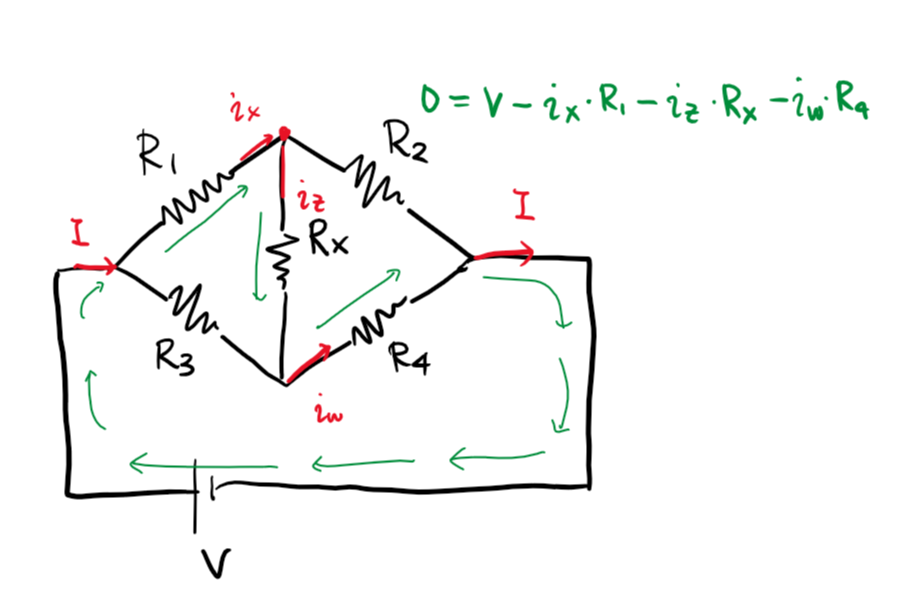 0 = V - ix · R1 - iz · Rx - iw · R4
ix
R1
R2
iz
I
I
Rx
R3
R4
iw
V